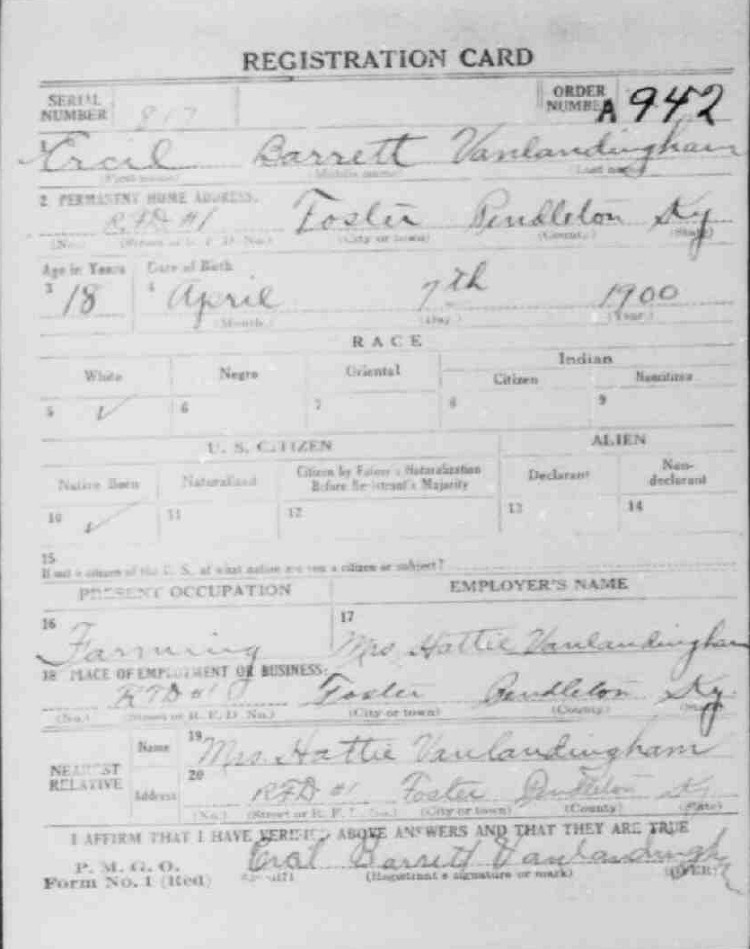 REGISTRATION CARD
SERIAL NUMBER 817 ORDER NUMBER A 942
1 Ercil Barrett Vanlandingham
(First name) (Middle name) (Last name)
2 PERMANENT HOME ADDRESS:
RFD #1 Foster Pendleton Ky
(No.) (Street or R. F. D. No.) (City or town) (County) (State)
Age in Years Date of Birth
3 18 4 April 7th 1900
(Month.) (Day.) (Year.)
RACE
White Negro Oriental Indian
Citizen Noncitizen
5 ✓ 6 7 8 9
U. S. CITIZEN ALIEN
Native Born Naturalized Citizen by Father's Naturalization Before Registrant's Majority Declarant Non-declarant
10 ✓ 11 12 13 14
15
If not a citizen of the U. S., of what nation are you a citizen or subject?
PRESENT OCCUPATION EMPLOYER'S NAME
16 Farming 17 Mrs Hattie Vanlandingham
18 PLACE OF EMPLOYMENT OR BUSINESS:
RFD #1 Foster Pendleton Ky
(No.) (Street or R. F. D. No.) (City or town) (County) (State)
NEAREST RELATIVE
Name 19 Mrs. Hattie Vanlandingham
Address 20 RFD #1 Foster Pendleton Ky
(No.) (Street or R. F. D. No.) (City or town) (County) (State)
I AFFIRM THAT I HAVE VERIFIED ABOVE ANSWERS AND THAT THEY ARE TRUE
P. M. G. O.
Form No. 1 (Red) Barrett Vanlandingh
(Registrant's signature or mark) (OVER)